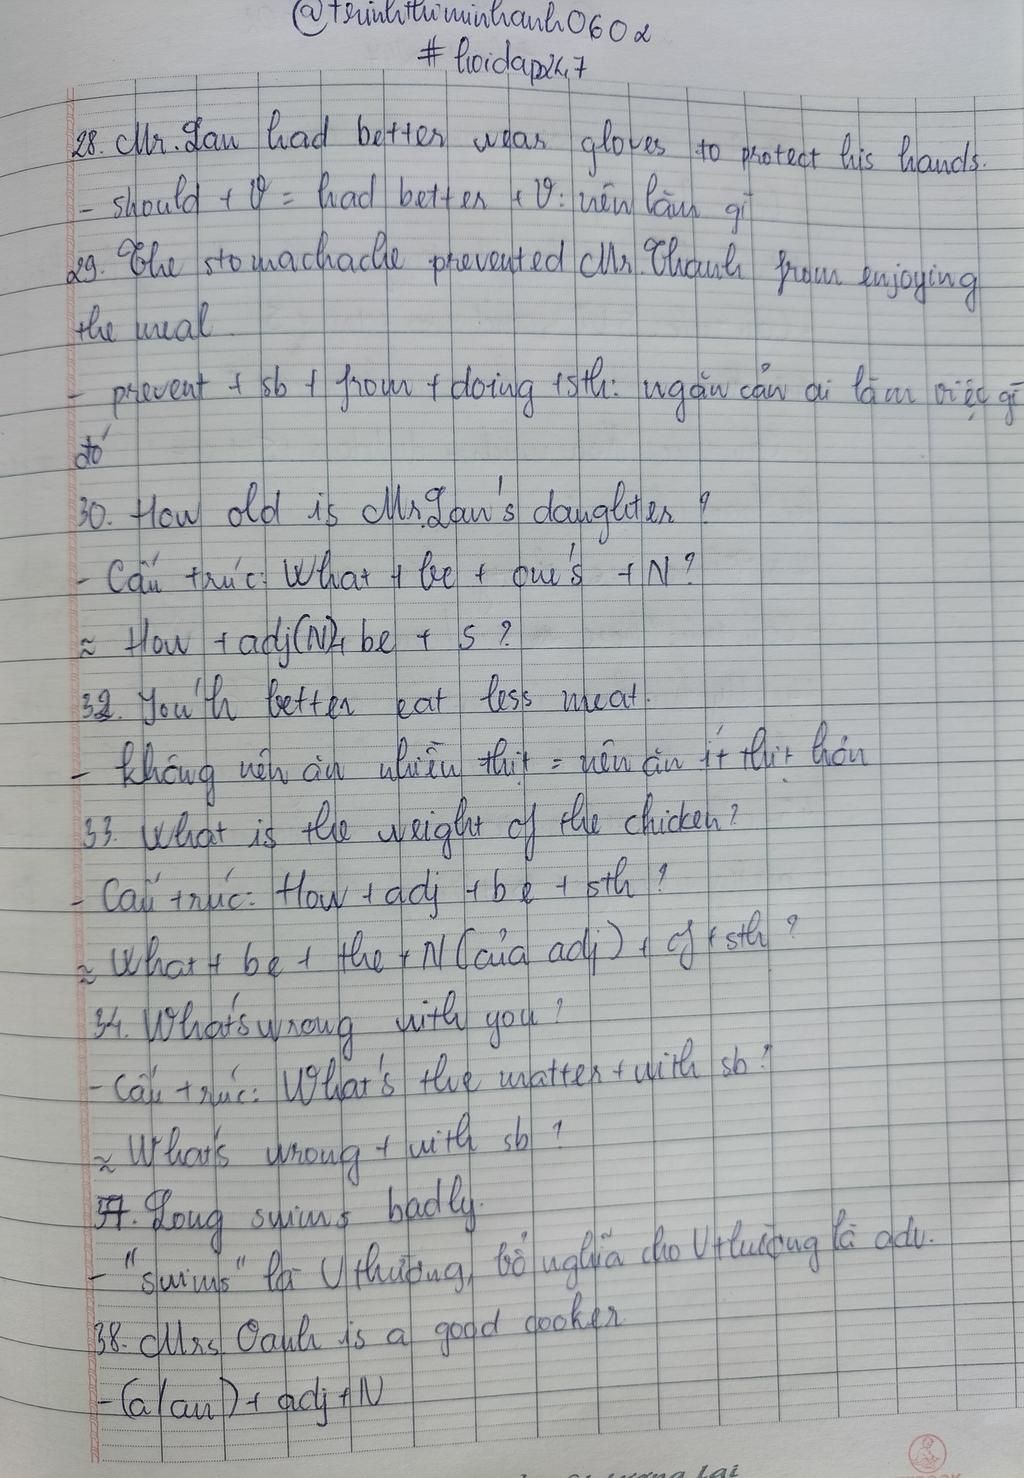 @trinhthiminhanh0602
# hoidap247
28. Mr. Lau had better wear gloves to protect his hands.
- should + V = had better + V: nên làm gì
29. The stomachache prevented Mr. Thanh from enjoying
the meal
- prevent + sb + from + doing + sth: ngăn cản ai làm việc gì
đó
30. How old is Mr. Lau's daughter?
- Cấu trúc: What + be + one's + N?
≈ How + adj(N) + be + S?
32. You'h better eat less meat.
- không nên ăn nhiều thịt = nên ăn ít thịt hơn
33. What is the weight of the chicken?
- Cấu trúc: How + adj + be + sth?
≈ What + be + the + N (của adj) + of + sth?
34. What's wrong with you?
- Cấu trúc: What's the matter + with sb?
≈ What's wrong + with sb?
37. Long swims badly.
- "swims" là V thường, bổ nghĩa cho V thường là adv.
38. Mrs Oanh is a good cooker
- (a/an) + adj + N